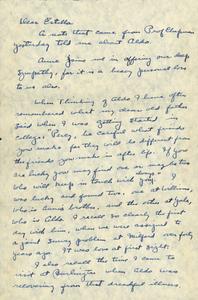 Dear Estella
A note that came from Prof Chapman
yesterday told me about Aldo.
Anne joins me in offering our deep
sympathy, for it is a heavy personal loss
to us also.
When thinking of Aldo I have often
remembered what my dear old father
said when I was getting started in
college. "Perly, be careful what friends
you make for they will be different from
the friends you make in after life. If you
are lucky you may find one or so
who will keep in touch with you." I
was lucky and found two, one at Williams,
who is Anne's brother, and the other at Yale,
who is Aldo. I recall so clearly the first
day with him, when we were assigned to
a joint survey problem at Milford over forty
years ago. It was love at first sight.
I also recall the time I came to
visit at Burlington when Aldo was
recovering from that dreadful illness,